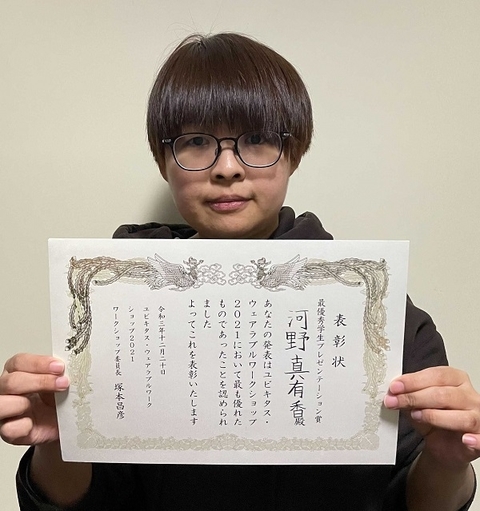 表彰状
最優秀学生プレゼンテーション賞
河野真有香殿
あなたの発表はユビキタス・
ウェアラブルワークショップ
2021において最も優れた
ものであったことを認められ
ました
よってこれを表彰いたします
令和三年十二月二十日
ユビキタス・ウェアラブルワーク
ショップ2021
ワークショップ委員長 塚本昌彦